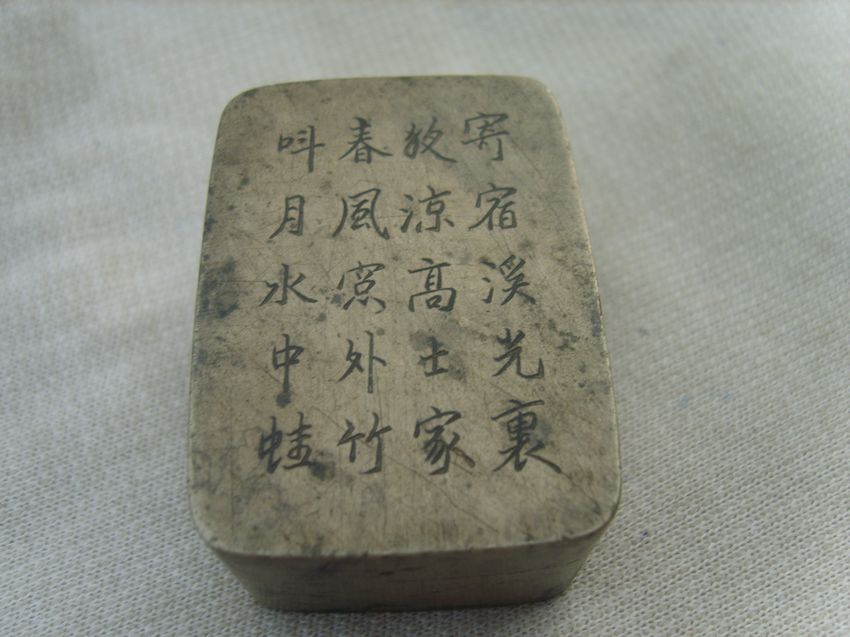 寄宿溪光裏
夜涼高士家
春風窓外竹
呌月水中蛙